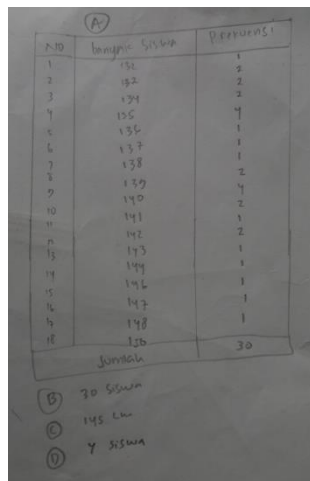 A
NO banyak Siswa Frekuensi
1 131 1
2 132 2
3 134 2
4 135 2
5 136 4
6 137 1
7 138 1
8 139 1
9 140 2
10 141 4
11 142 2
12 143 1
13 144 2
14 146 1
15 147 1
16 148 1
17 150 1
18
Jumlah 30
B 30 siswa
C 145 cm
D 4 siswa